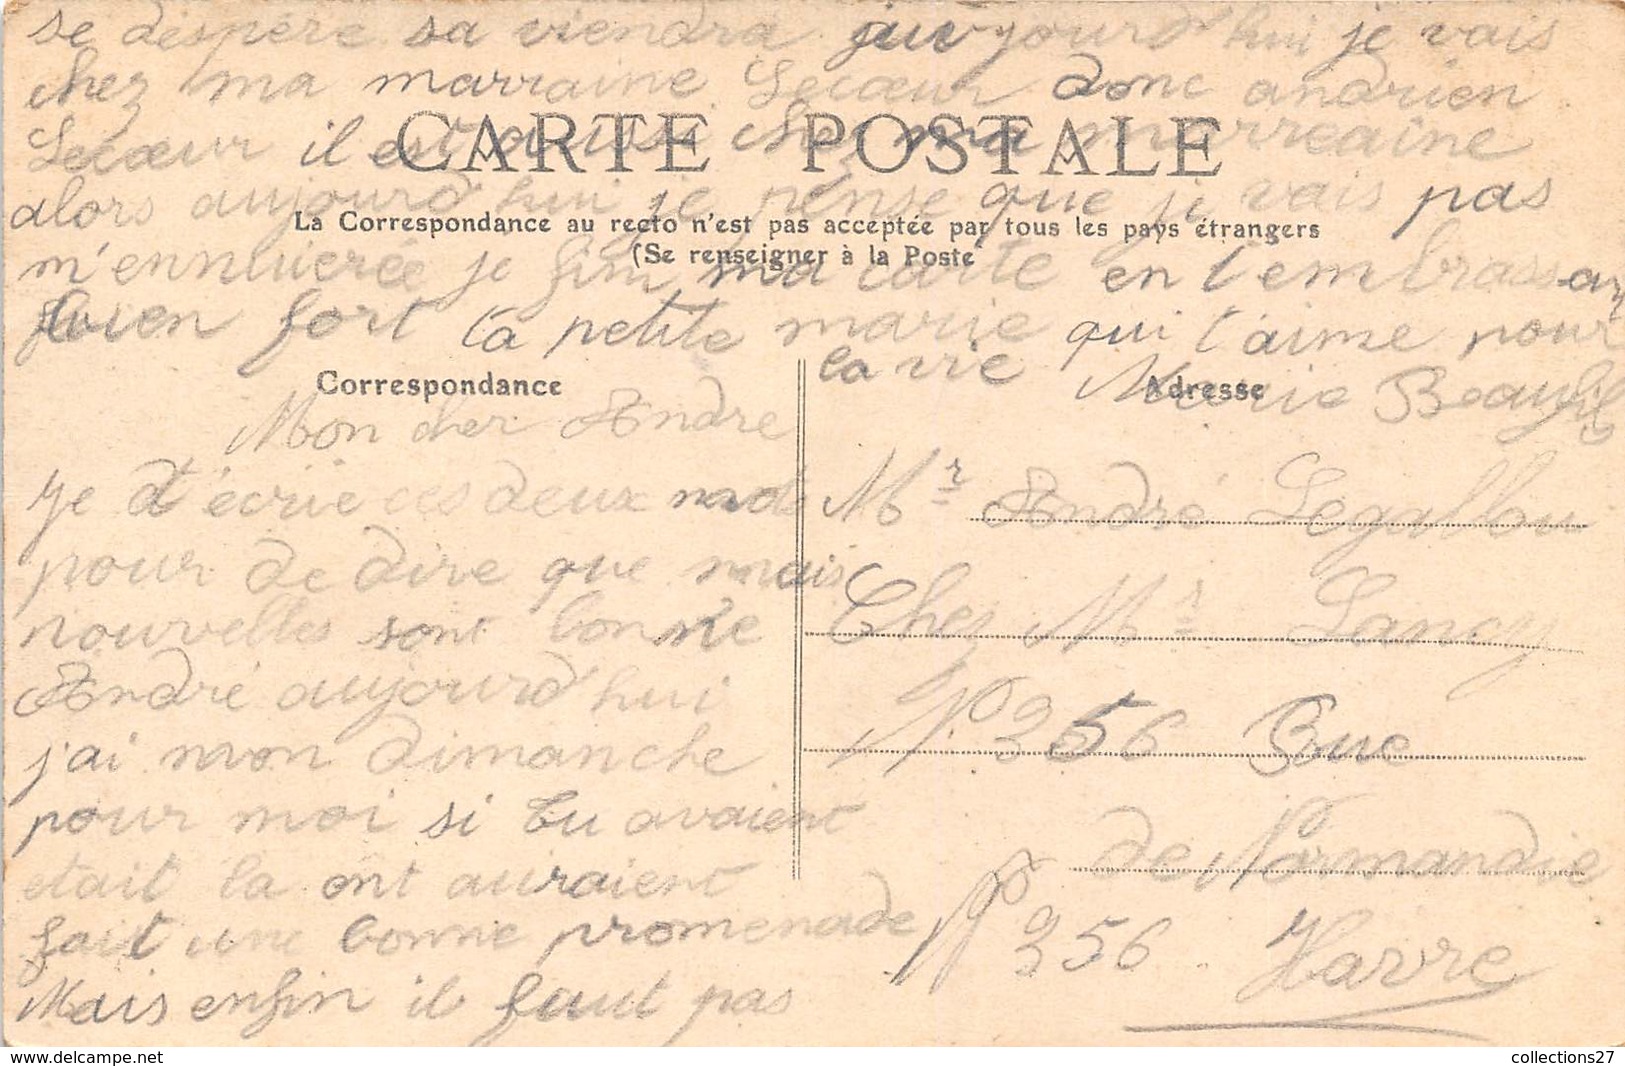 se déspère sa viendra aujourd'hui je vais
chez ma marraine Lecœur donc andrien
Lecœur il est aussi chez ma marreaine
CARTE POSTALE
alors aujourd'hui je pense que ji vais pas
La Correspondance au recto n'est pas acceptée par tous les pays étrangers
(Se renseigner à la Poste
m'ennuierée je finn ma carte en t'embrassan
bien fort ta petite marie qui t'aime pour
la vie
Marie Beaufil
Correspondance
Mon cher André
Je d'écrie ces deux mots
pour de dire que mais
nouvelles sont bonne
André aujourd'hui
j'ai mon dimanche
pour moi si tu avaient
était la ont auraient
fait une bonne promenade
Mais enfin il faut pas
Adresse
Mr André Legallou
Chez Mr Lancy
No 356 Rue
de Normandie
No 356 Havre
collections27